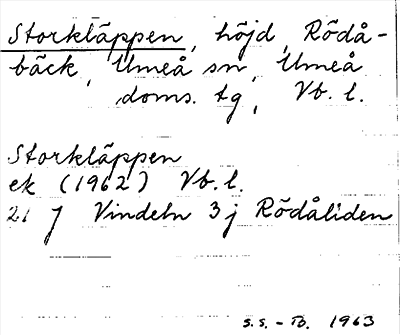 Storkläppen, höjd, Rödå-
bäck, Umeå sn, Umeå
doms. tg, Vb. l.
Storkläppen
ek (1962) Vb. l.
21 J Vindeln 3j Rödåliden
S.S. - Tb. 1963